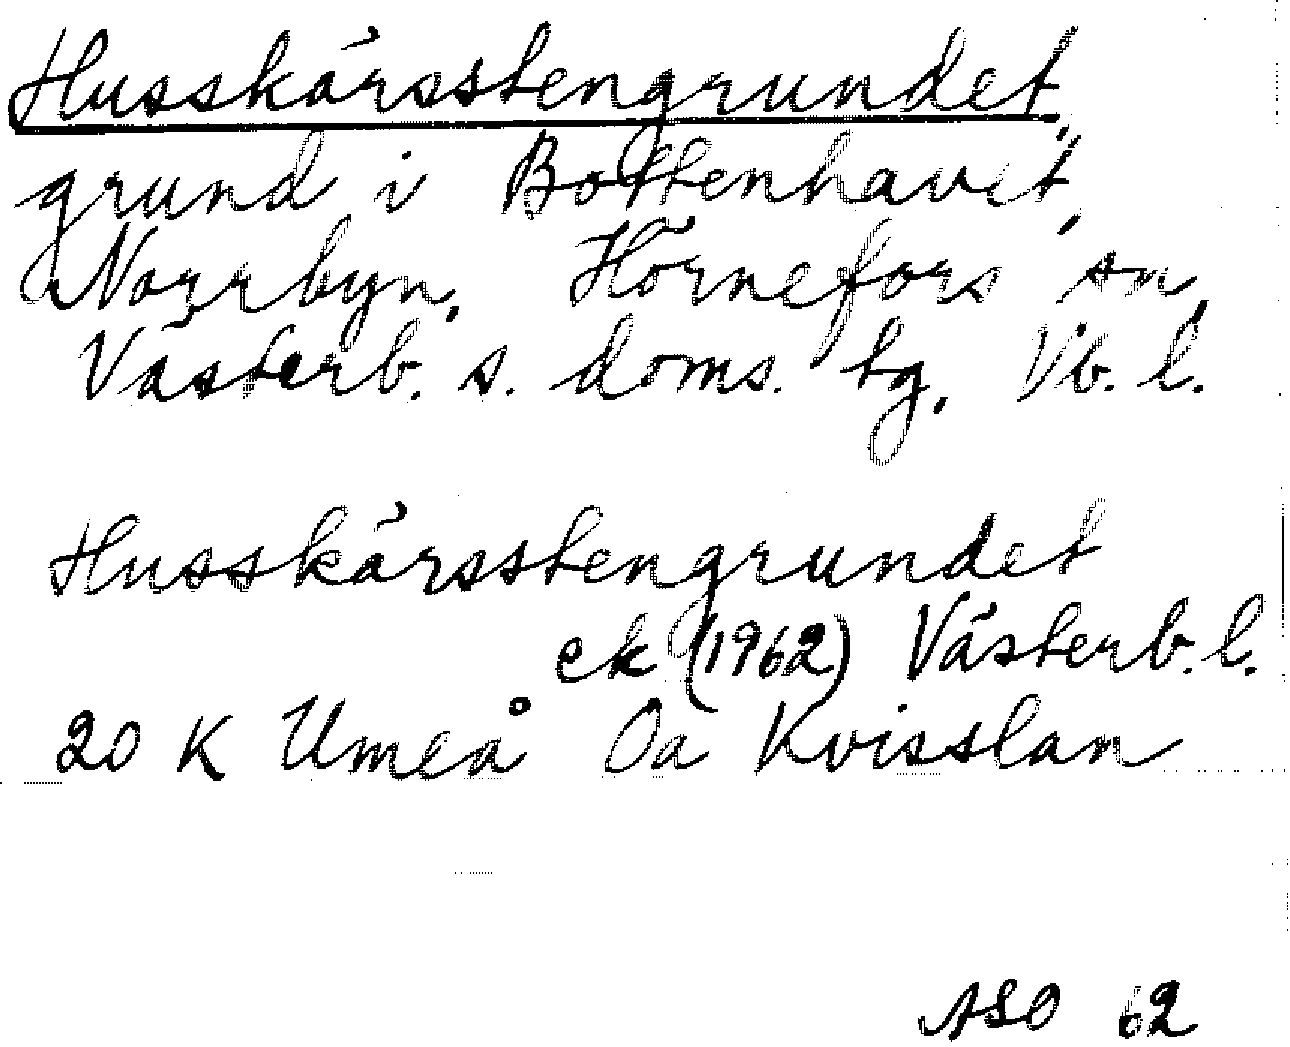 Husskärsstengrundet,
grund i Bottenhavet,
Norrbyn, Hörnefors sn,
Västerb. s. doms. tg, Vb. l.
Husskärsstengrundet
ek (1962) Västerb. l.
20 K Umeå Öa Kvisslan
ASO 62